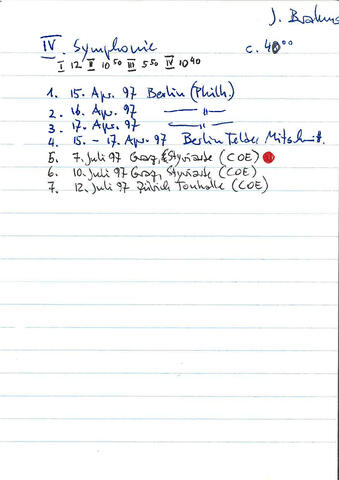 J. Brahms
IV. Symphonie c. 40⁰⁰
I 12 II 10⁵⁰ III 5⁵⁰ IV 10⁴⁰
1. 15. Apr. 97 Berlin (Philh)
2. 16. Apr. 97 —— " ——
3. 17. Apr. 97 —— " ——
4. 15. - 17. Apr. 97 Berlin Teldec Mitschnitt.
5. 7. Juli 97 Graz, Styriarte (COE)
6. 10. Juli 97 Graz, Styriarte (COE)
7. 12. Juli 97 Zürich Tonhalle (COE)